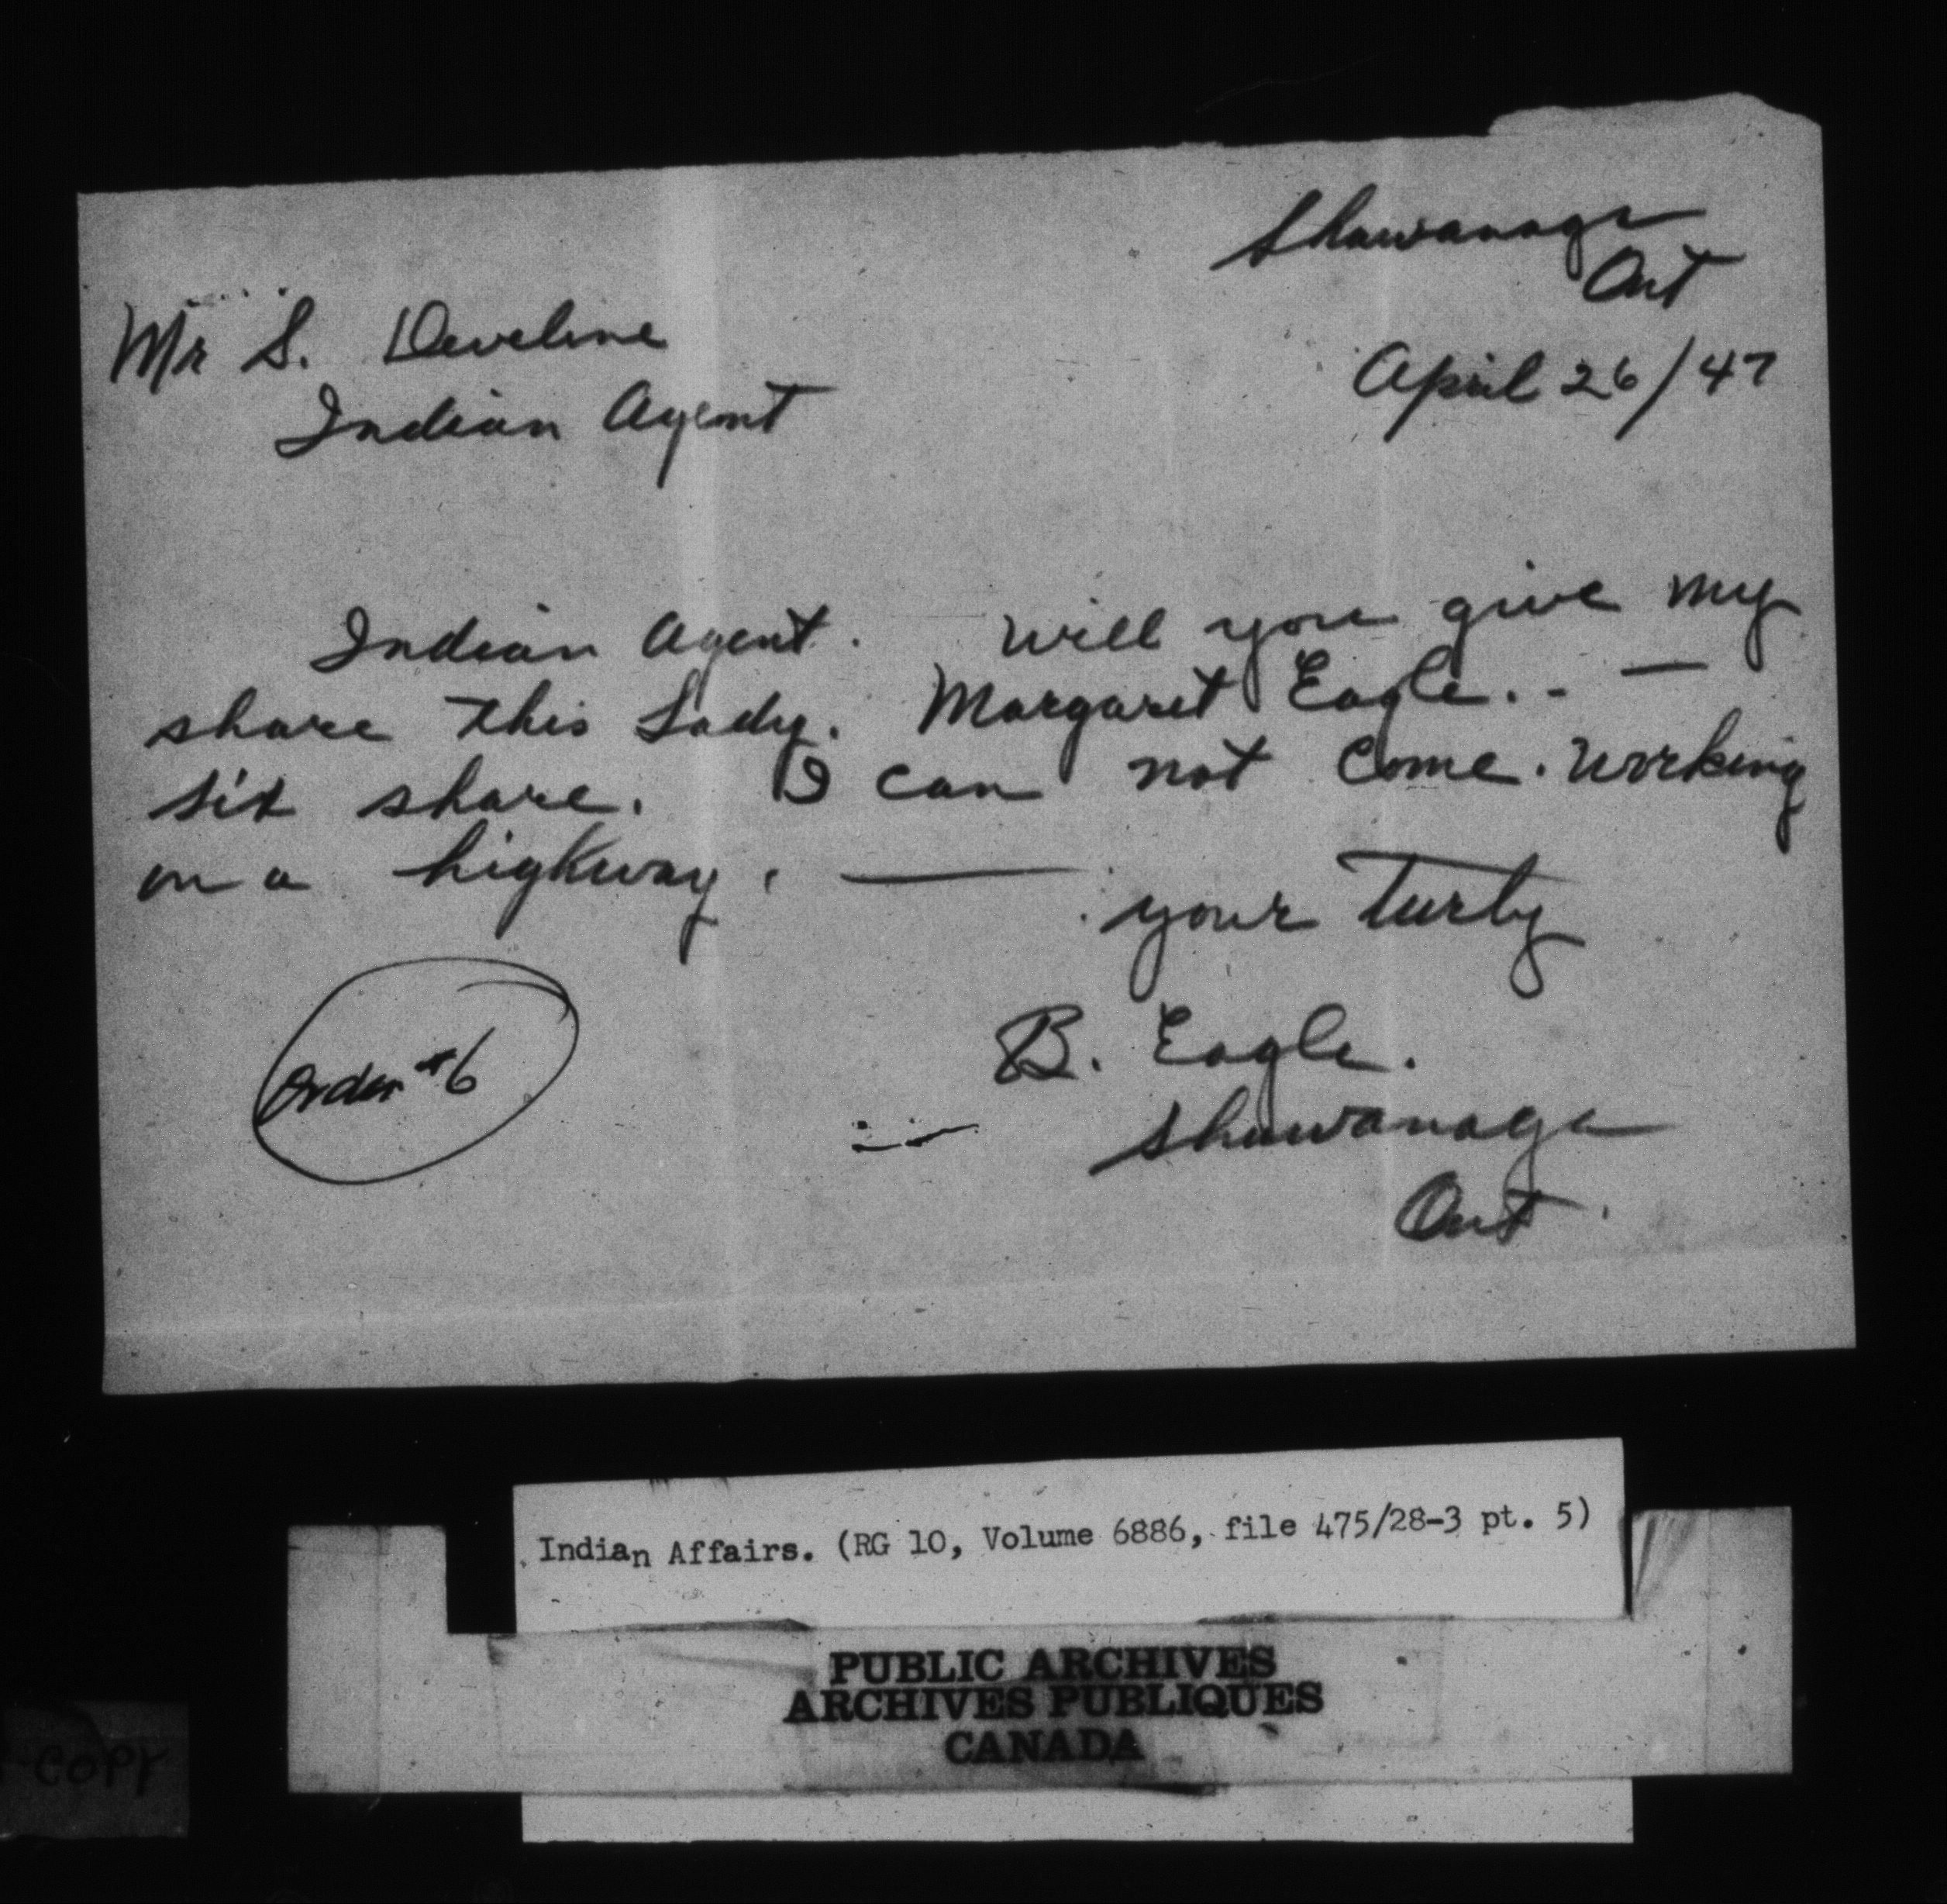 Shawanaga
Ont
Mr S. Develine
April 26/47
Indian Agent
Indian Agent. Will you give my
share this Lady. Margaret Eagle. - —
six share. I can not come. working
on a highway. —
your Turly
B. Eagle.
Shawanaga
Ont.
Order #6
Indian Affairs. (RG 10, Volume 6886, file 475/28-3 pt. 5)
PUBLIC ARCHIVES
ARCHIVES PUBLIQUES
CANADA
COPY